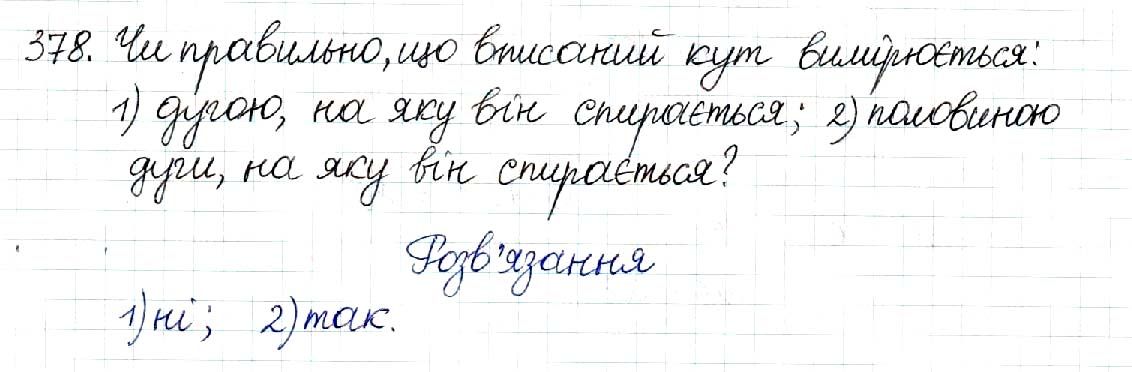 378. Чи правильно, що вписаний кут вимірюється:
1) дугою, на яку він спирається; 2) половиною
дуги, на яку він спирається?
Розв'язання
1) ні; 2) так.